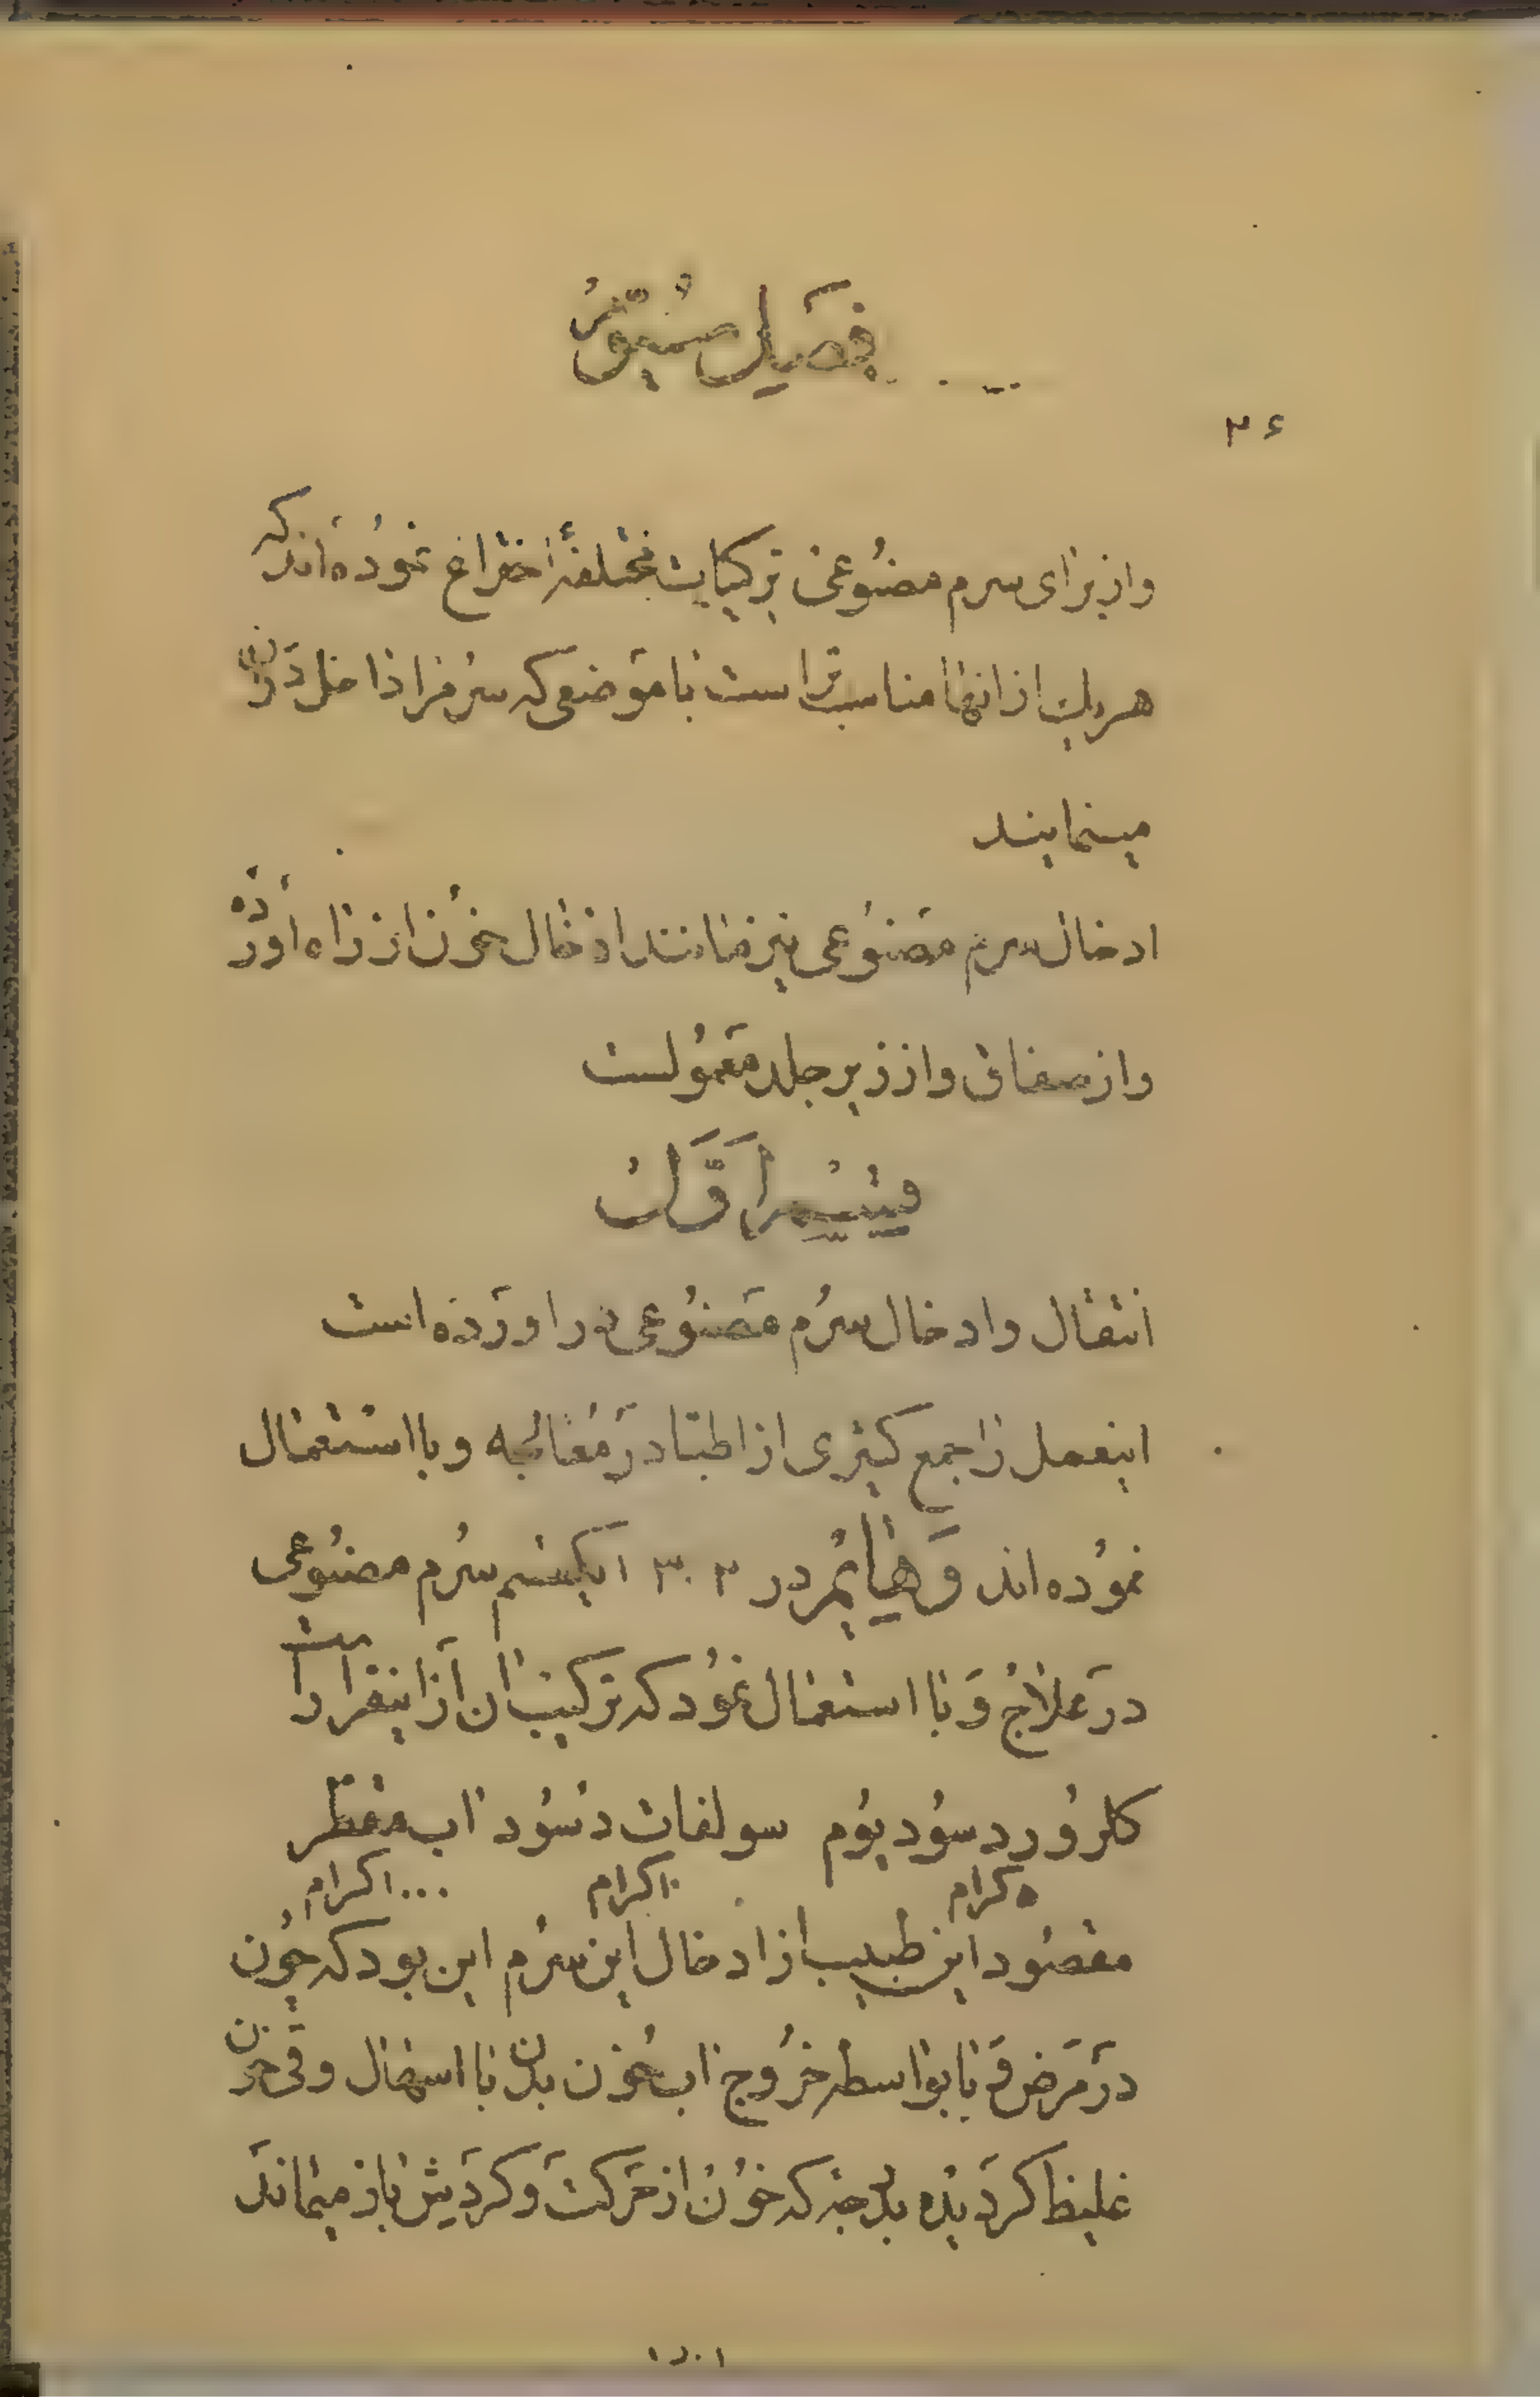 فصل سیم
۳۶
واز برای سرم مصنوعی ترکیبات مختلفهٔ اختراع نموده‌اند که
هریك از انها مناسب‌تر است با موضعی که سرم را داخل در ان
مینمایند
ادخال سرم مصنوعی نیز مانند ادخال خون از راه اورده
واز صفاق واز زیر جلد معمولست
قسم اول
انتقال وادخال سرم مصنوعی در اورده است
اینعمل را جمع کثیری از اطبا در معالجه وبا استعمال
نموده‌اند وهایم در
ایکقسم سرم مصنوعی
در علاج وبا استعمال نمود که ترکیب ان از اینقرار است
کلرور دسودیوم سولفات دسود اب مقطر
۵ کرام ۱۰ کرام ۱۰۰۰ کرام
مقصود این طبیب از ادخال این سرم این بود که چون
در مرض وبا بواسطه خروج اب خون بدن با اسهال وقی خون
غلیظ کردیده بدرجهٔ که خون از حرکت وکردیش باز میماند